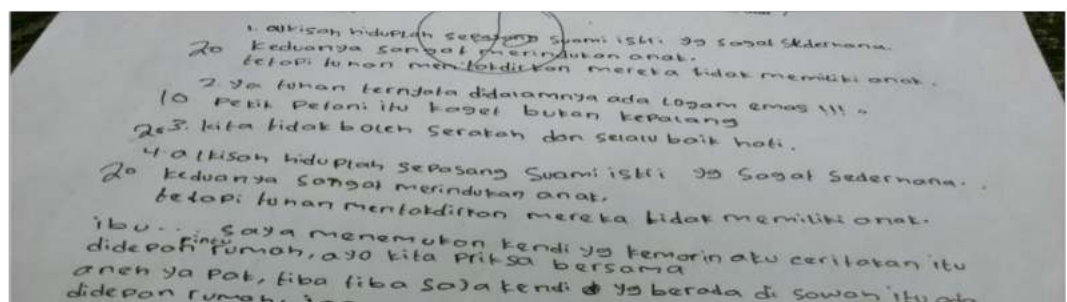 1. alkisah hiduplah sepasang suami istri yg sagat sederhana.
20 keduanya sangat merindukan anak.
tetapi tuhan mentakdirkan mereka tidak memiliki anak.
2. ya tuhan ternyata didalamnya ada logam emas !!!
10 pekik petani itu kaget bukan kepalang
20 3. kita tidak boleh serakah dan selalu baik hati.
4. alkisah hiduplah sepasang suami istri yg sagat sederhana.
20 keduanya sangat merindukan anak.
tetapi tuhan mentakdirkan mereka tidak memiliki anak.
ibu... saya menemukan kendi yg kemarin aku ceritakan itu
didepan pintu rumah, ayo kita priksa bersama
aneh ya pak, tiba tiba saja kendi yg berada di sawah itu ada
didepan rumah,